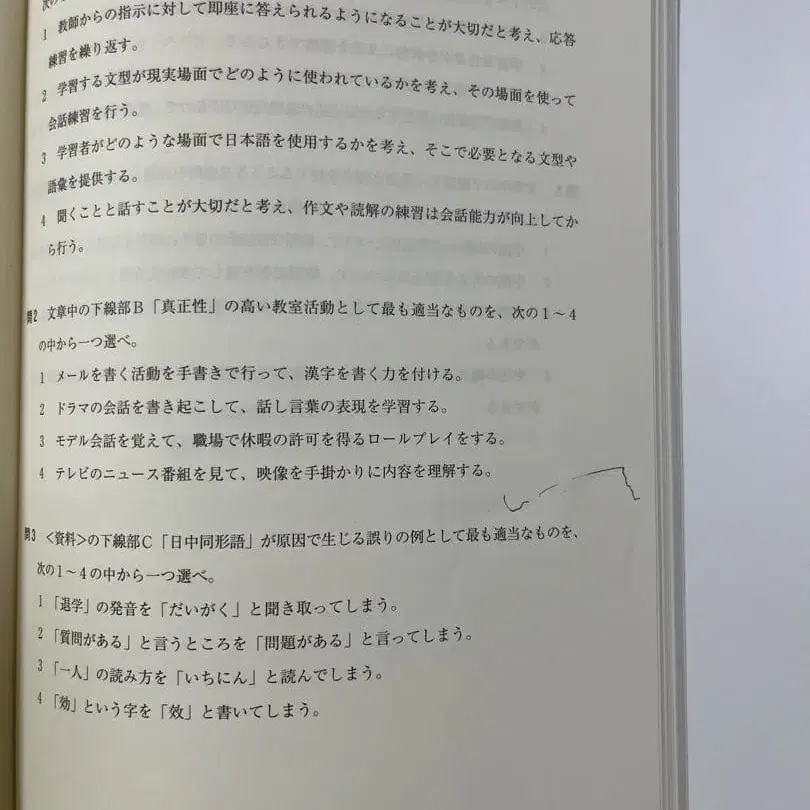 次の
1 教師からの指示に対して即座に答えられるようになることが大切だと考え、応答
練習を繰り返す。
2 学習する文型が現実場面でどのように使われているかを考え、その場面を使って
会話練習を行う。
3 学習者がどのような場面で日本語を使用するかを考え、そこで必要となる文型や
語彙を提供する。
4 聞くことと話すことが大切だと考え、作文や読解の練習は会話能力が向上してか
ら行う。
問2 文章中の下線部B「真正性」の高い教室活動として最も適当なものを、次の1～4
の中から一つ選べ。
1 メールを書く活動を手書きで行って、漢字を書く力を付ける。
2 ドラマの会話を書き起こして、話し言葉の表現を学習する。
3 モデル会話を覚えて、職場で休暇の許可を得るロールプレイをする。
4 テレビのニュース番組を見て、映像を手掛かりに内容を理解する。
問3 <資料>の下線部C「日中同形語」が原因で生じる誤りの例として最も適当なものを、
次の1～4の中から一つ選べ。
1 「退学」の発音を「だいがく」と聞き取ってしまう。
2 「質問がある」と言うところを「問題がある」と言ってしまう。
3 「一人」の読み方を「いちにん」と読んでしまう。
4 「効」という字を「效」と書いてしまう。